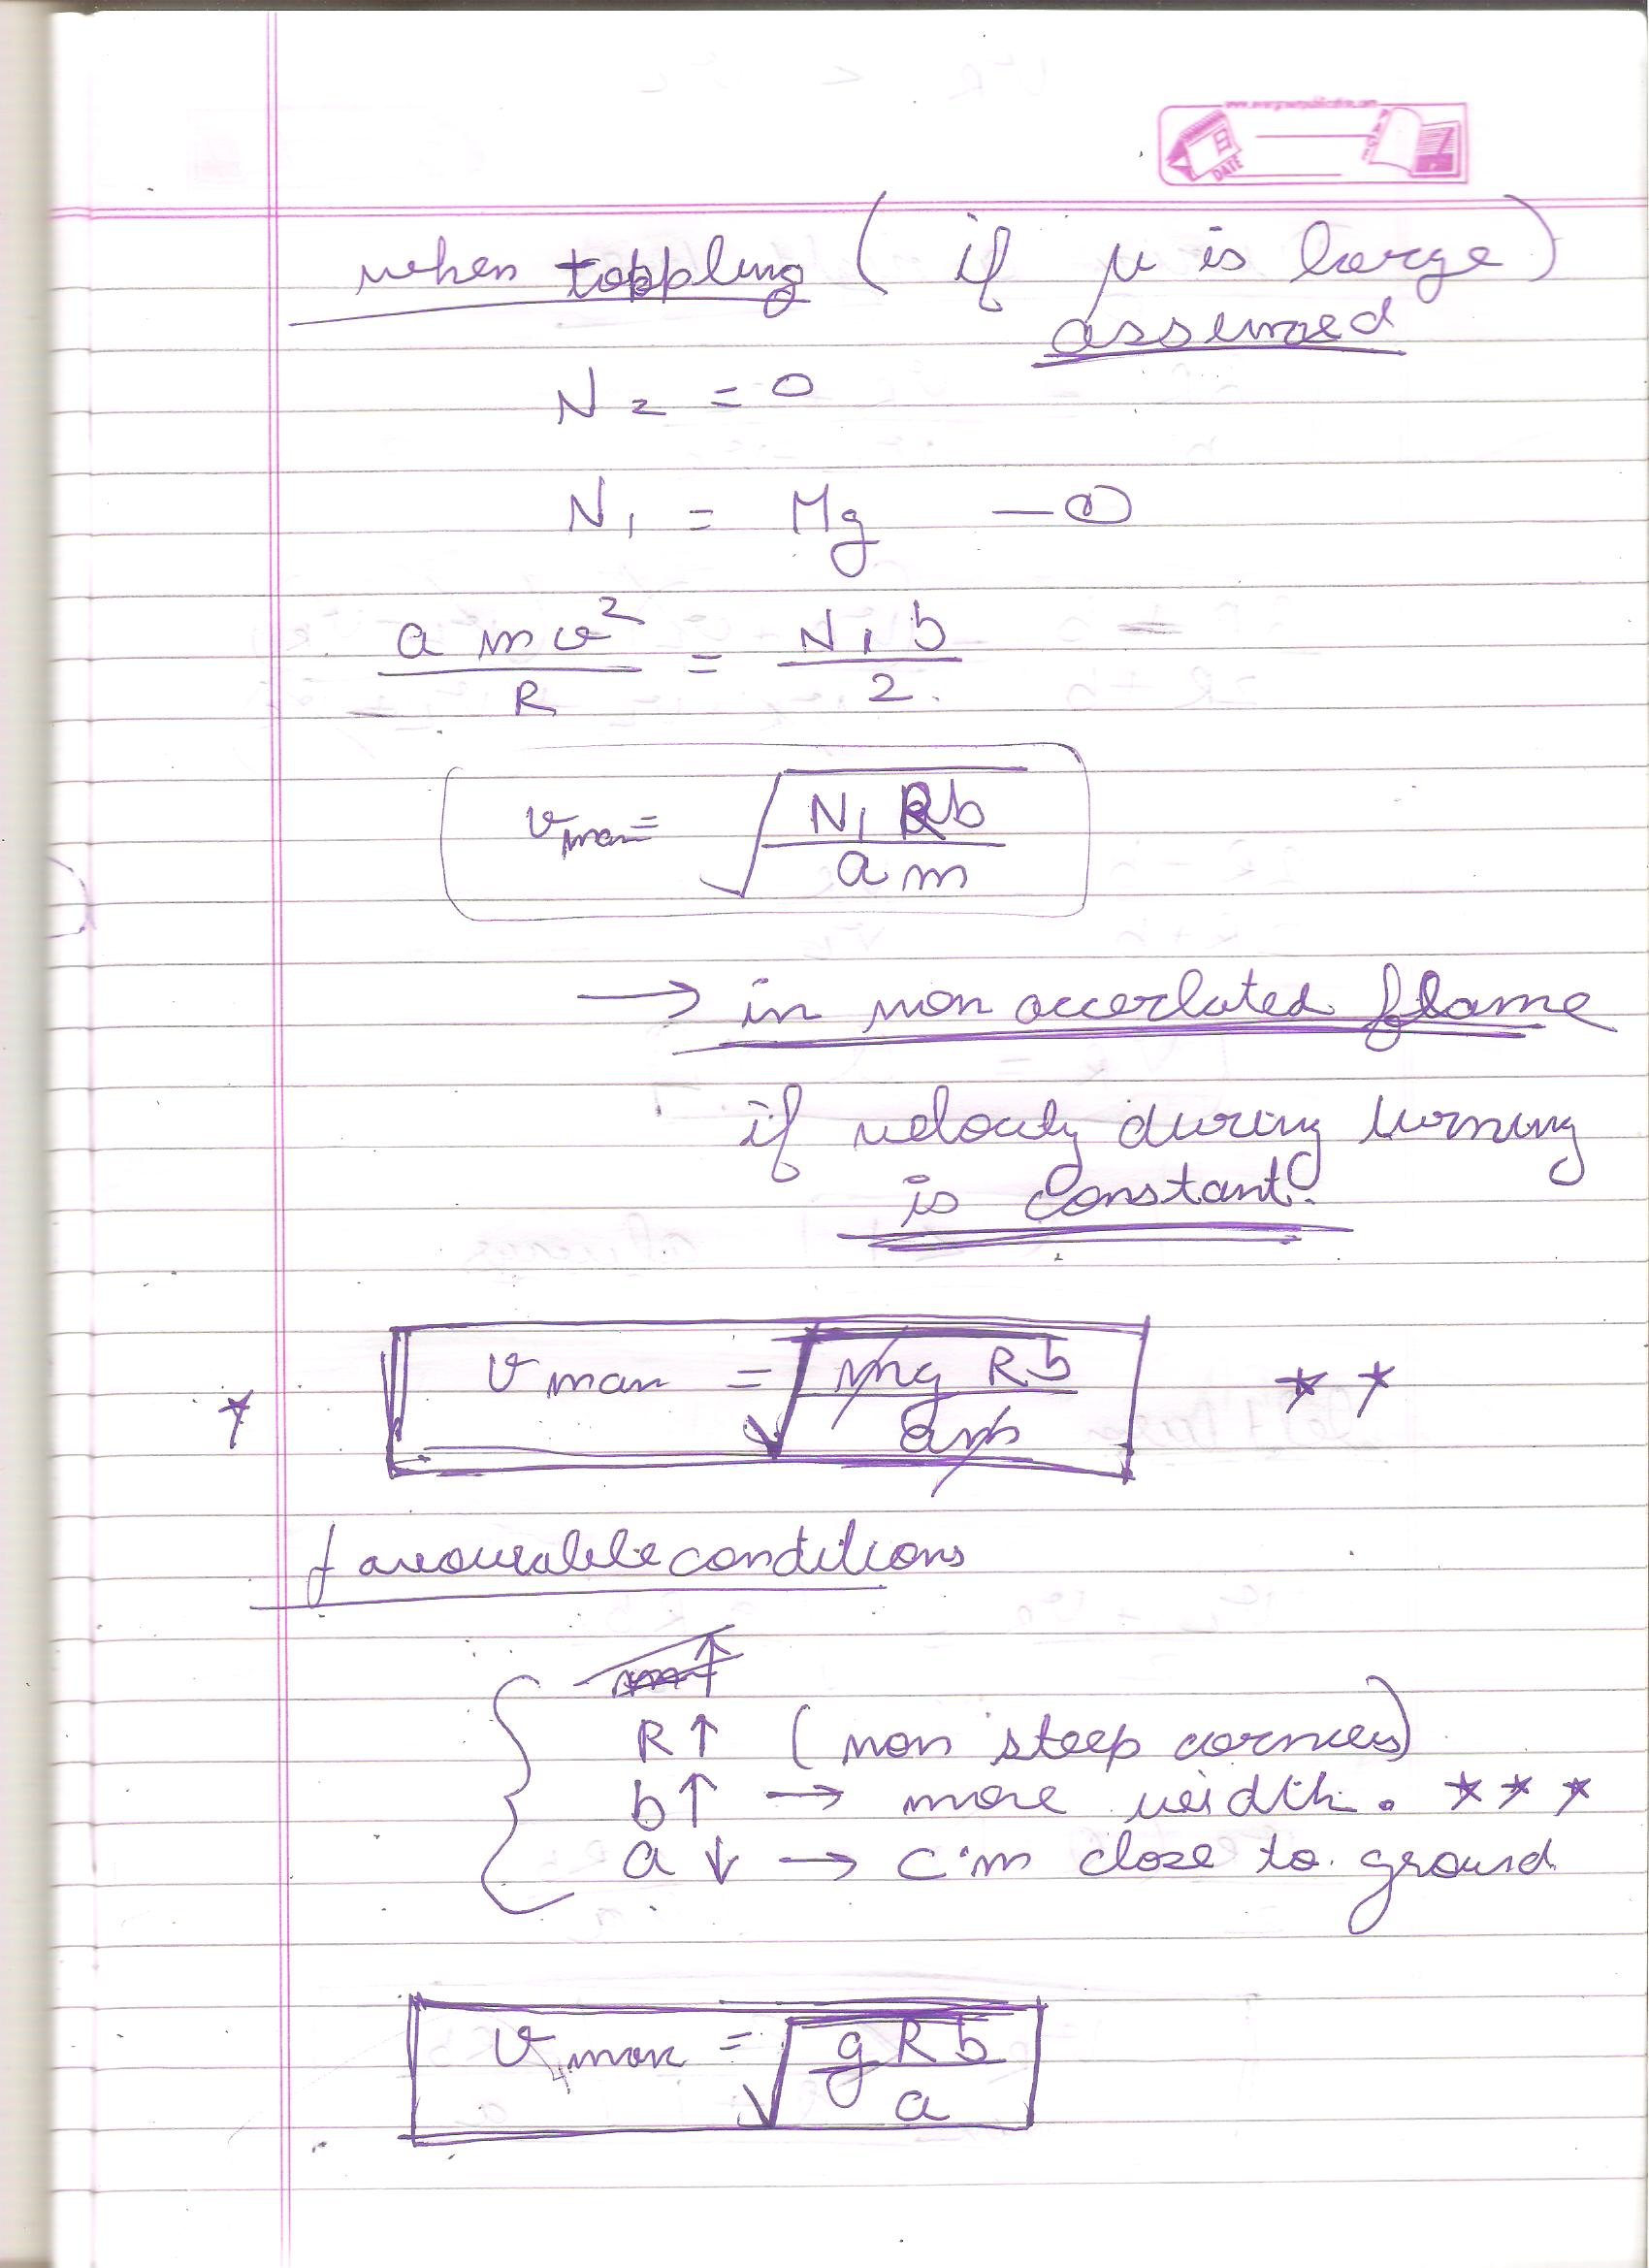 DATE
PAGE
when toppling ( if μ is large )
assumed
N2 = 0
N1 = Mg — ①
a m v² / R = N1 b / 2.
vmax = √(N1 Rb / a m)
→ in non accerlated flame
if velocity during turning
is constant.
vmax = √(mg Rb / am)
favourable conditions
m↑
R↑ ( non steep corners)
b↑ → more width. ★ ★ ★
a ↓ → c.m close to ground
vmax = √(g R b / a)